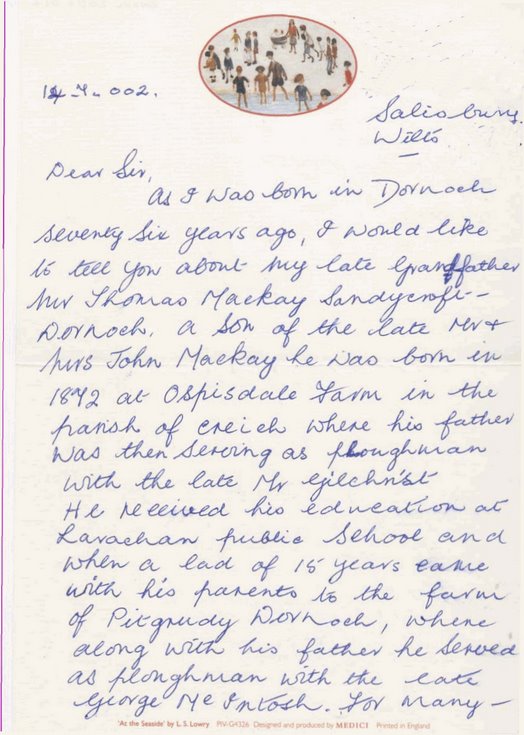 14-7-002.
Salisbury.
Wilts
Dear Sir,
As I was born in Dornoch
seventy six years ago, I would like
to tell you about my late Grandfather
Mr Thomas Mackay Sandycroft-
Dornoch. a son of the late Mr +
Mrs John Mackay he was born in
1872 at Ospisdale Farm in the
parish of creich where his father
was then serving as ploughman
with the late Mr Gilchrist
He received his education at
Larachan public School and
when a lad of 15 years came
with his parents to the farm
of Pitgrudy Dornoch, where
along with his father he served
as ploughman with the late
George Mc Intosh. For many-
'At the Seaside' by L. S. Lowry PIV-G4326 Designed and produced by MEDICI Printed in England